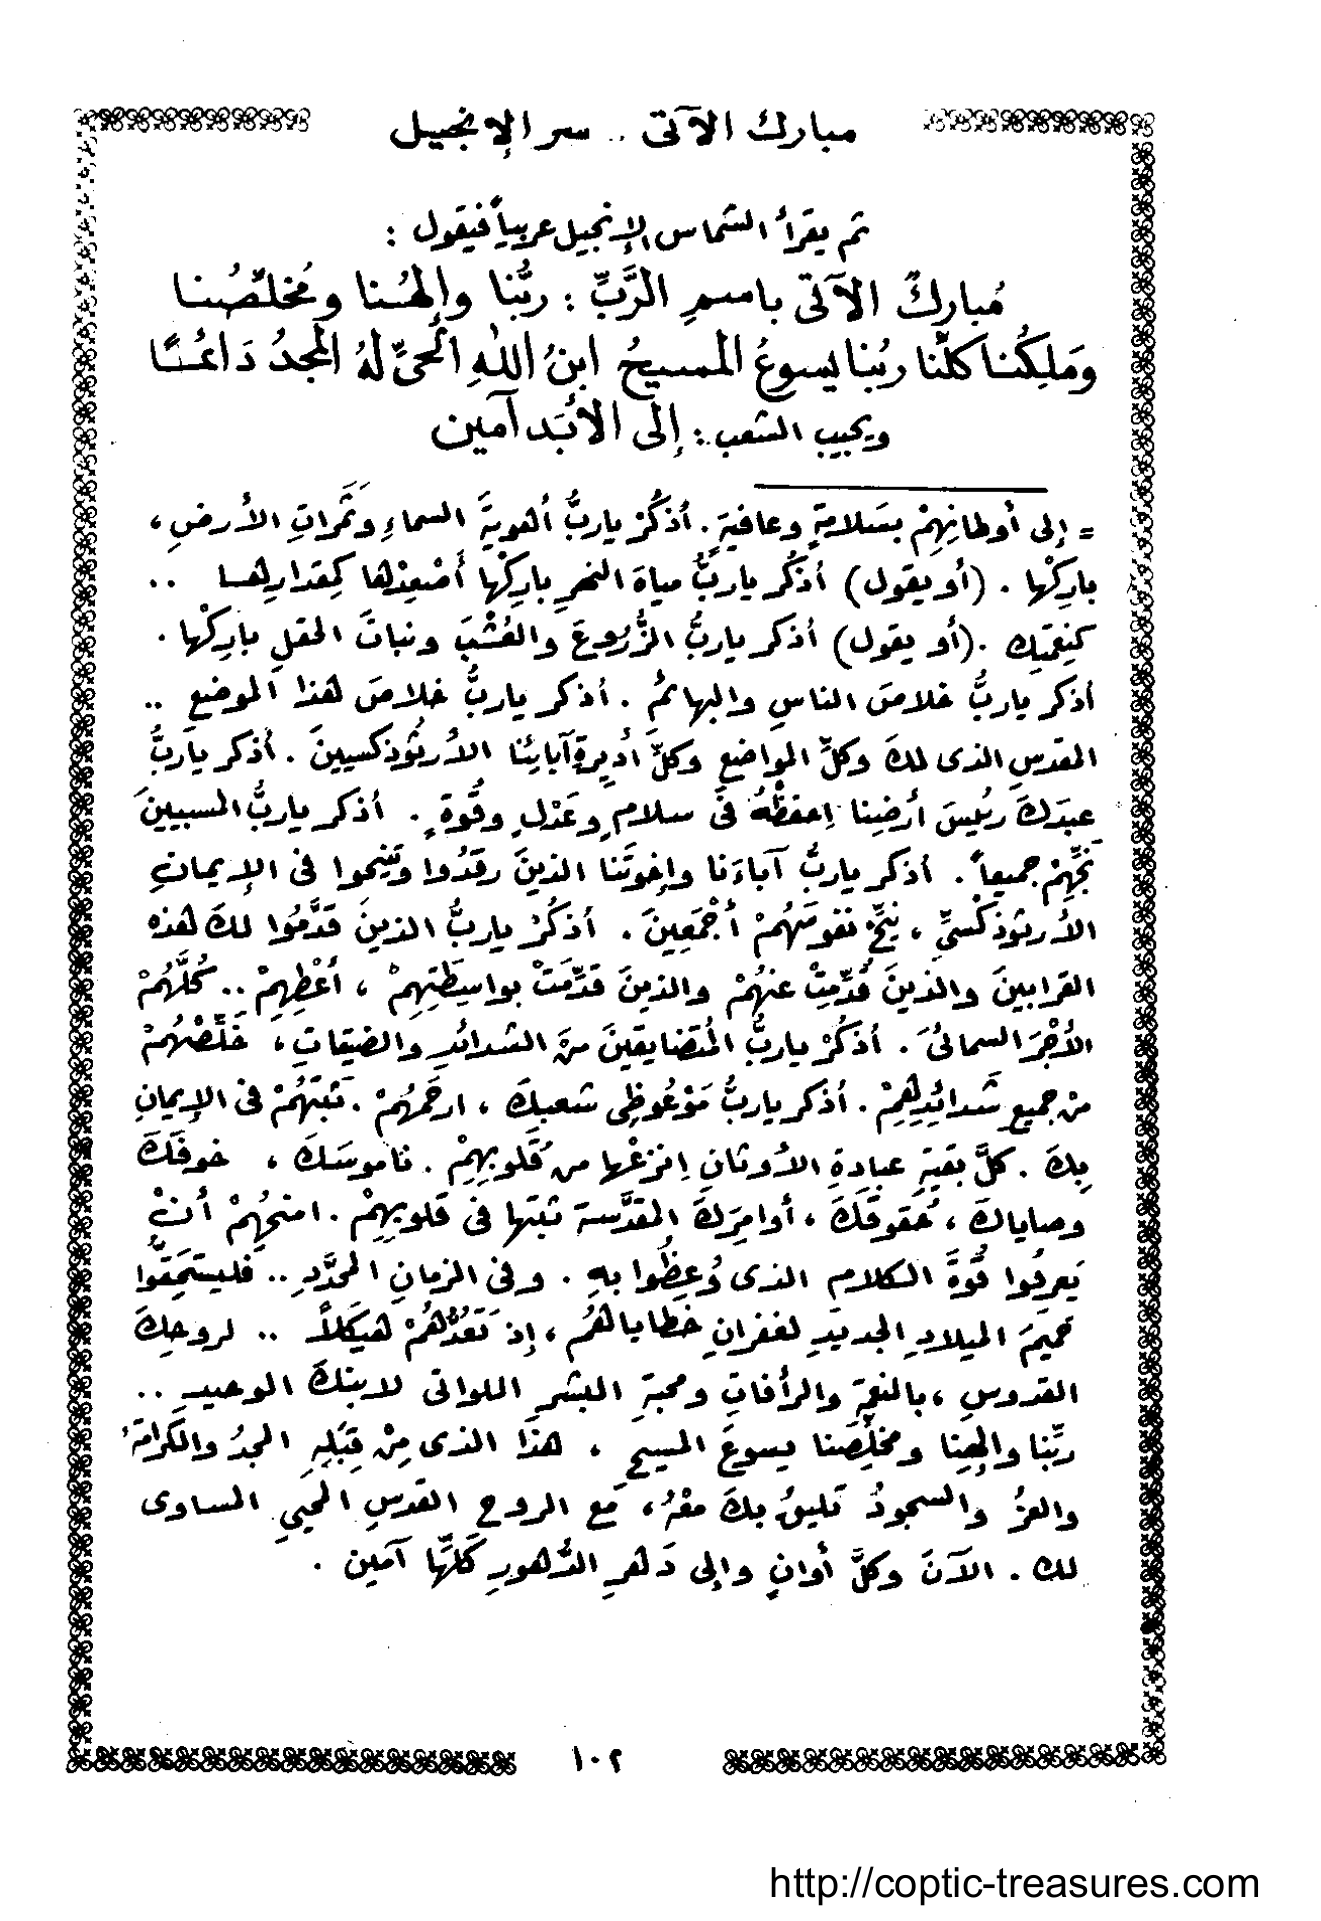 مبارك الآتى .. سر الإنجيل
ثم يقرأ الشماس الإنجيل عربياً فيقول :
مُباركٌ الآتى باسمِ الرَّبِّ : ربُّنا وإلهُنا ومُخلِّصُنا
وَمَلِكُنا كلِّنا ربُنا يسوعُ المسيحُ ابنُ اللهِ الحىِّ لهُ المجدُ دَائمًا
ويجيب الشعب : إلى الأبَد آمين
= إلى أوطانِهِمْ بسَلامةٍ وعافيةٍ . أذكُرْ ياربُّ أهويةَ السماءِ وثَمَراتِ الأرضِ ،
بارِكْها . (أو يقول) أذكُر ياربُّ مياهَ النهرِ بارِكْها أَصْعِدْها كمِقدارِها ..
كنِعمَتِك . (أو يقول) أذكر ياربُّ الزُّرُوعَ والعُشْبَ ونباتَ الحقلِ بارِكْها .
أذكر ياربُّ خلاصَ الناسِ والبهائمُ . أذكر ياربُّ خلاصَ هذا الموضعِ ..
المقدسِ الذى لكَ وكلِّ المواضعِ وكلِّ أديرةِ آبائِنا الأرثوذكسيينَ . أذكر ياربُّ
عبدَكَ رئيسَ أرضِنا احفظْهُ فى سلامٍ وعَدْلٍ وقُوةٍ . أذكر ياربُّ المسبيينَ
نَجِّهِمْ جميعاً . أذكر ياربُّ آباءَنا وإخوتَنا الذينَ رقَدُوا وتَنيحوا فى الإيمانِ
الأرثوذكسىِّ ، نيِّحْ نفوسَهُمْ أجْمَعِينَ . أذكُرْ ياربُّ الذينَ قدَّمُوا لكَ هذه
القرابينَ والذينَ قُدِّمتْ عنهُمْ والذينَ قدِّمَتْ بواسِطَتِهِمْ ، أَعْطِهِمْ .. كُلَّهُمْ
الأجْرَ السمائىَ . أذكُرْ ياربُّ المُتضايقينَ منَ الشدائدِ والضيقاتِ ، خَلِّصْهُمْ
منْ جميعِ شَدائدِهِمْ . أذكر ياربُّ مَوْعُوظِى شعبِكَ ، ارحَمْهُمْ . ثبتهُمْ فى الإيمانِ
بِكَ . كلَّ بقيةِ عبادةِ الأوثانِ انزعْها منْ قُلوبِهِمْ . ناموسَكَ ، خوفَكَ
وصاياكَ ، حُقوقَكَ ، أوامِرَكَ المقدَّسة ثبتها فى قلوبِهِمْ . امنحْهُمْ أنْ
يَعرِفُوا قُوةَ الكلامِ الذى وُعِظُوا بهِ . وفى الزمانِ المحدَّدِ .. فليستحِقُّوا
حميمَ الميلادِ الجديدِ لغفرانِ خطاياهُمْ ، إذ تَعُدُّهُمْ هيكَلاً .. لروحِكَ
القدوسِ ، بالنعمةِ والرأفاتِ ومحبةِ البشرِ اللواتى لابنكَ الوحيدِ ..
ربِّنا وإلهِنا ومخلِّصَنا يسوعَ المسيحِ ، هذَا الذى مِنْ قِبَلِهِ المجدُ والكرامةُ
والعزُ والسجودُ تليقُ بكَ معَهُ ، مَع الروحِ القدسِ المحيىِ المساوى
لك . الآنَ وكلَّ أوانٍ وإلى دَهرِ الدُّهورِ كلِّها آمين .
١٠٢
http://coptic-treasures.com